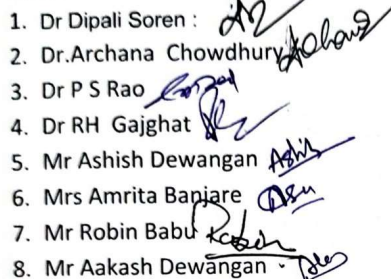 1. Dr Dipali Soren :
2. Dr.Archana Chowdhury
3. Dr P S Rao
4. Dr RH Gajghat
5. Mr Ashish Dewangan Ashish
6. Mrs Amrita Banjare
7. Mr Robin Babu Robin
8. Mr Aakash Dewangan